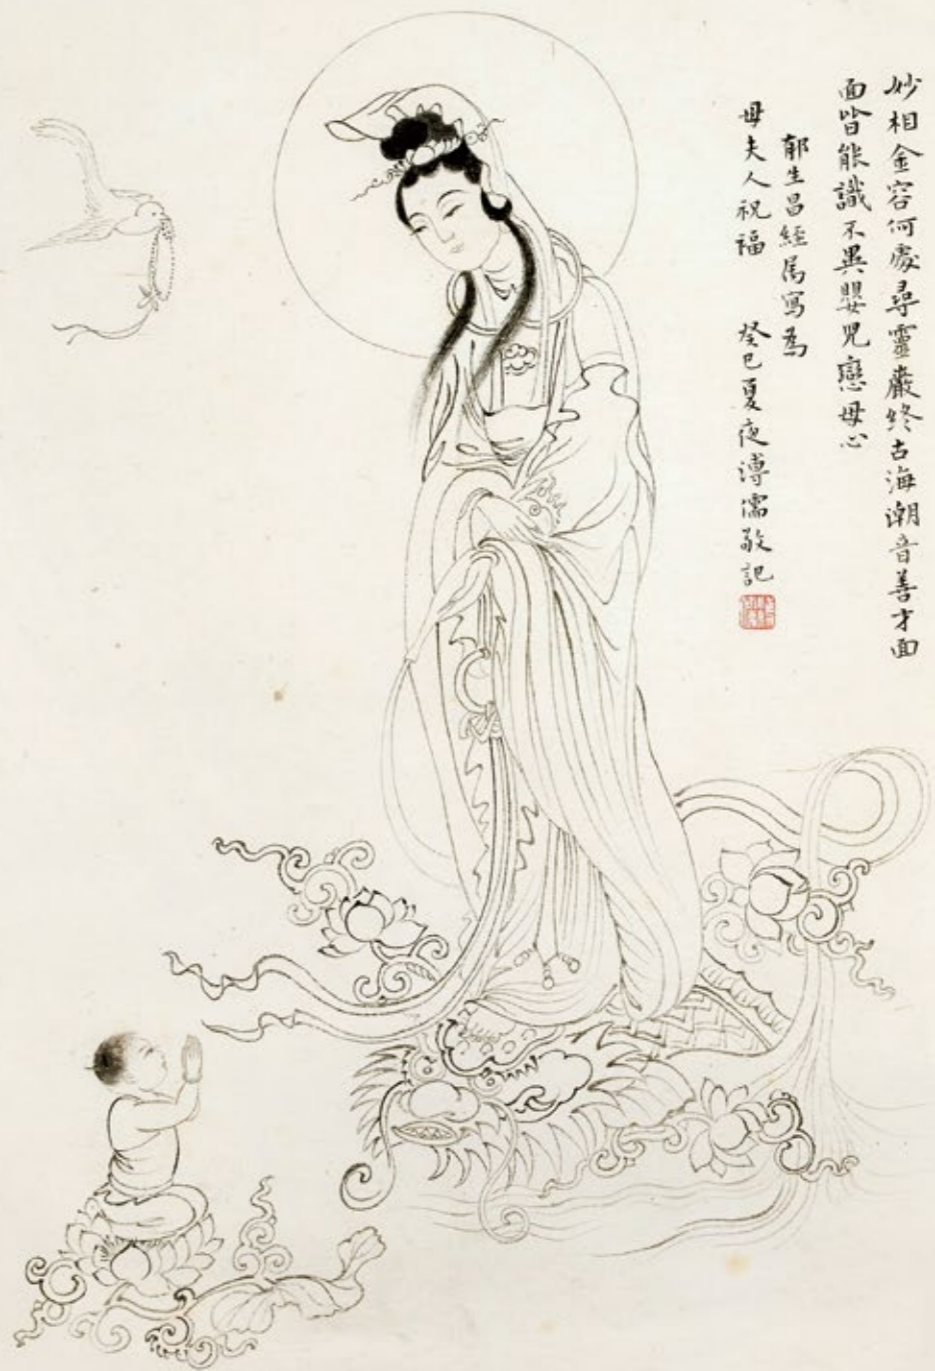 妙相金容何處尋靈巖終古海潮音善才面
面皆能識不異嬰兒戀母心
郁生昌經屬寫為
母夫人祝福　癸巳夏夜溥儒敬記